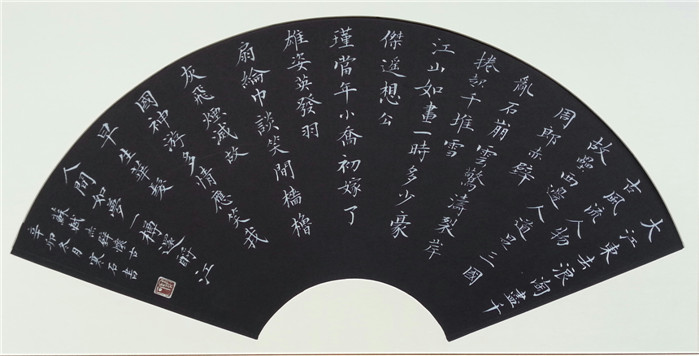 大江東去浪淘盡千
古風流人物
故壘西邊人道是三國
周郎赤壁
亂石崩雲驚濤裂岸
捲起千堆雪
江山如畫一時多少豪
傑遥想公
瑾當年小喬初嫁了
雄姿英發羽
扇綸巾談笑間檣櫓
灰飛煙滅故
國神游多情應笑我
早生華髮
人間如夢一樽還酹江
蘇軾赤壁懷古
辛卯冬月東石書